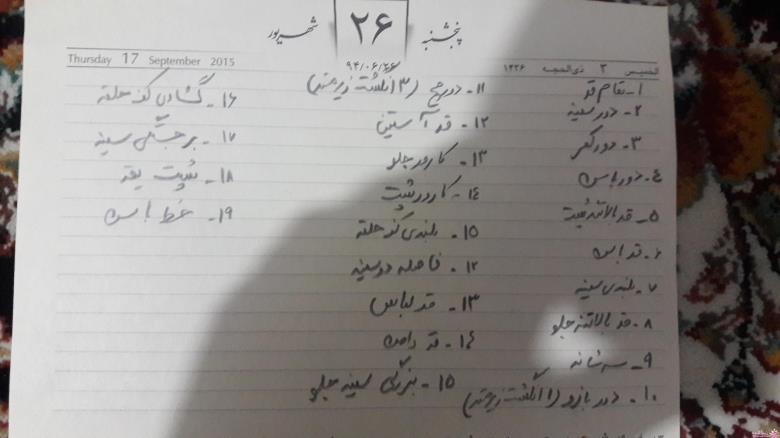 پنجشنبه
۲۶
شهریور
۹۴/۰۶/۲۶
الخمیس ۳ ذی‌الحجه ۱۴۳۶
Thursday 17 September 2015
۱- تمام قد
۲- دور سینه
۳- دور کمر
۴- دور باسن
۵- قد بالاتنه پشت
۶- قد باسن
۷- بلندی سینه
۸- قد بالاتنه جلو
۹- سرشانه
۱۰- دور بازو (۱ انگشت زیر متر)
۱۱- دور مچ (۳ انگشت زیر متر)
۱۲- قد آستین
۱۳- کارور جلو
۱۴- کارور پشت
۱۵- بلندی کف حلقه
۱۲- فاصله دو سینه
۱۳- قد لباس
۱۴- قد دامن
۱۵- بزرگی سینه جلو
۱۶- گشادی کف حلقه
۱۷- برجستگی سینه
۱۸- پشت یقه
۱۹- خط باسن